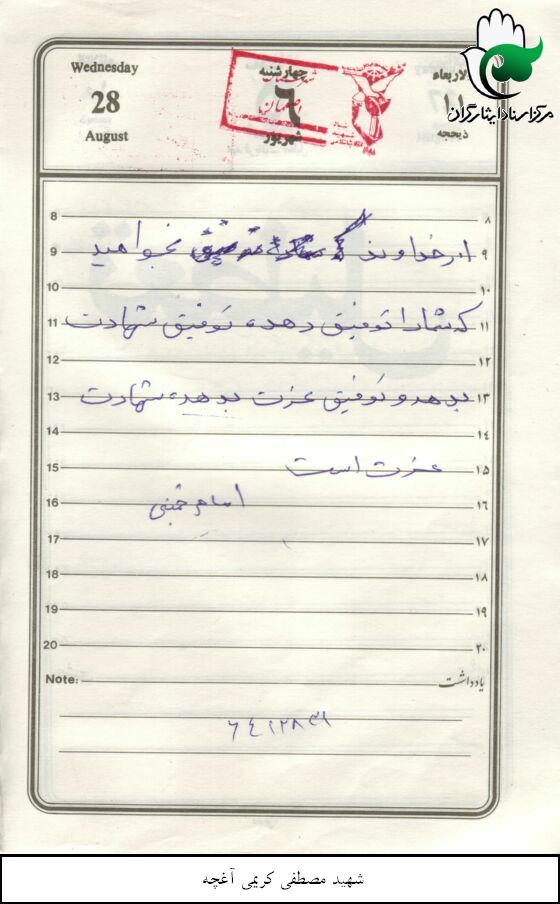 مرکز اسناد ایثارگران
Wednesday
28
August
چهارشنبه
۶
شهریور
اصفهان
الاربعاء
ذیحجه
8 ۸
از خداوند بخواهید
9 ۹
10 ۱۰
که شما را توفیق دهد، توفیق شهادت
11 ۱۱
12 ۱۲
بدهد و توفیق عزت بدهد، شهادت
13 ۱۳
14 ۱۴
عزت است
15 ۱۵
امام خمینی
16 ۱۶
17 ۱۷
18 ۱۸
19 ۱۹
20 ۲۰
Note: یادداشت
شهید مصطفی کریمی آغچه